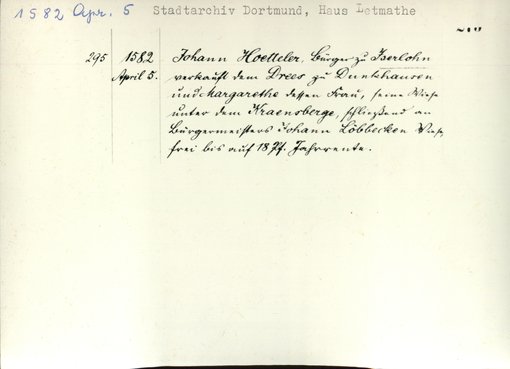 1582 Apr. 5 Stadtarchiv Dortmund, Haus Letmathe
295 1582 Johann Hoetteler, Bürger zu Iserlohn
April 5. verkauft dem Drees zu Duntzhausen
und Margarethe dessen Frau, seine Wiese
unter dem Kraensberge, schließend an
Bürgermeisters Johann Löbbecken Wiese,
frei bis auf 18 Pf. Jahrrente.